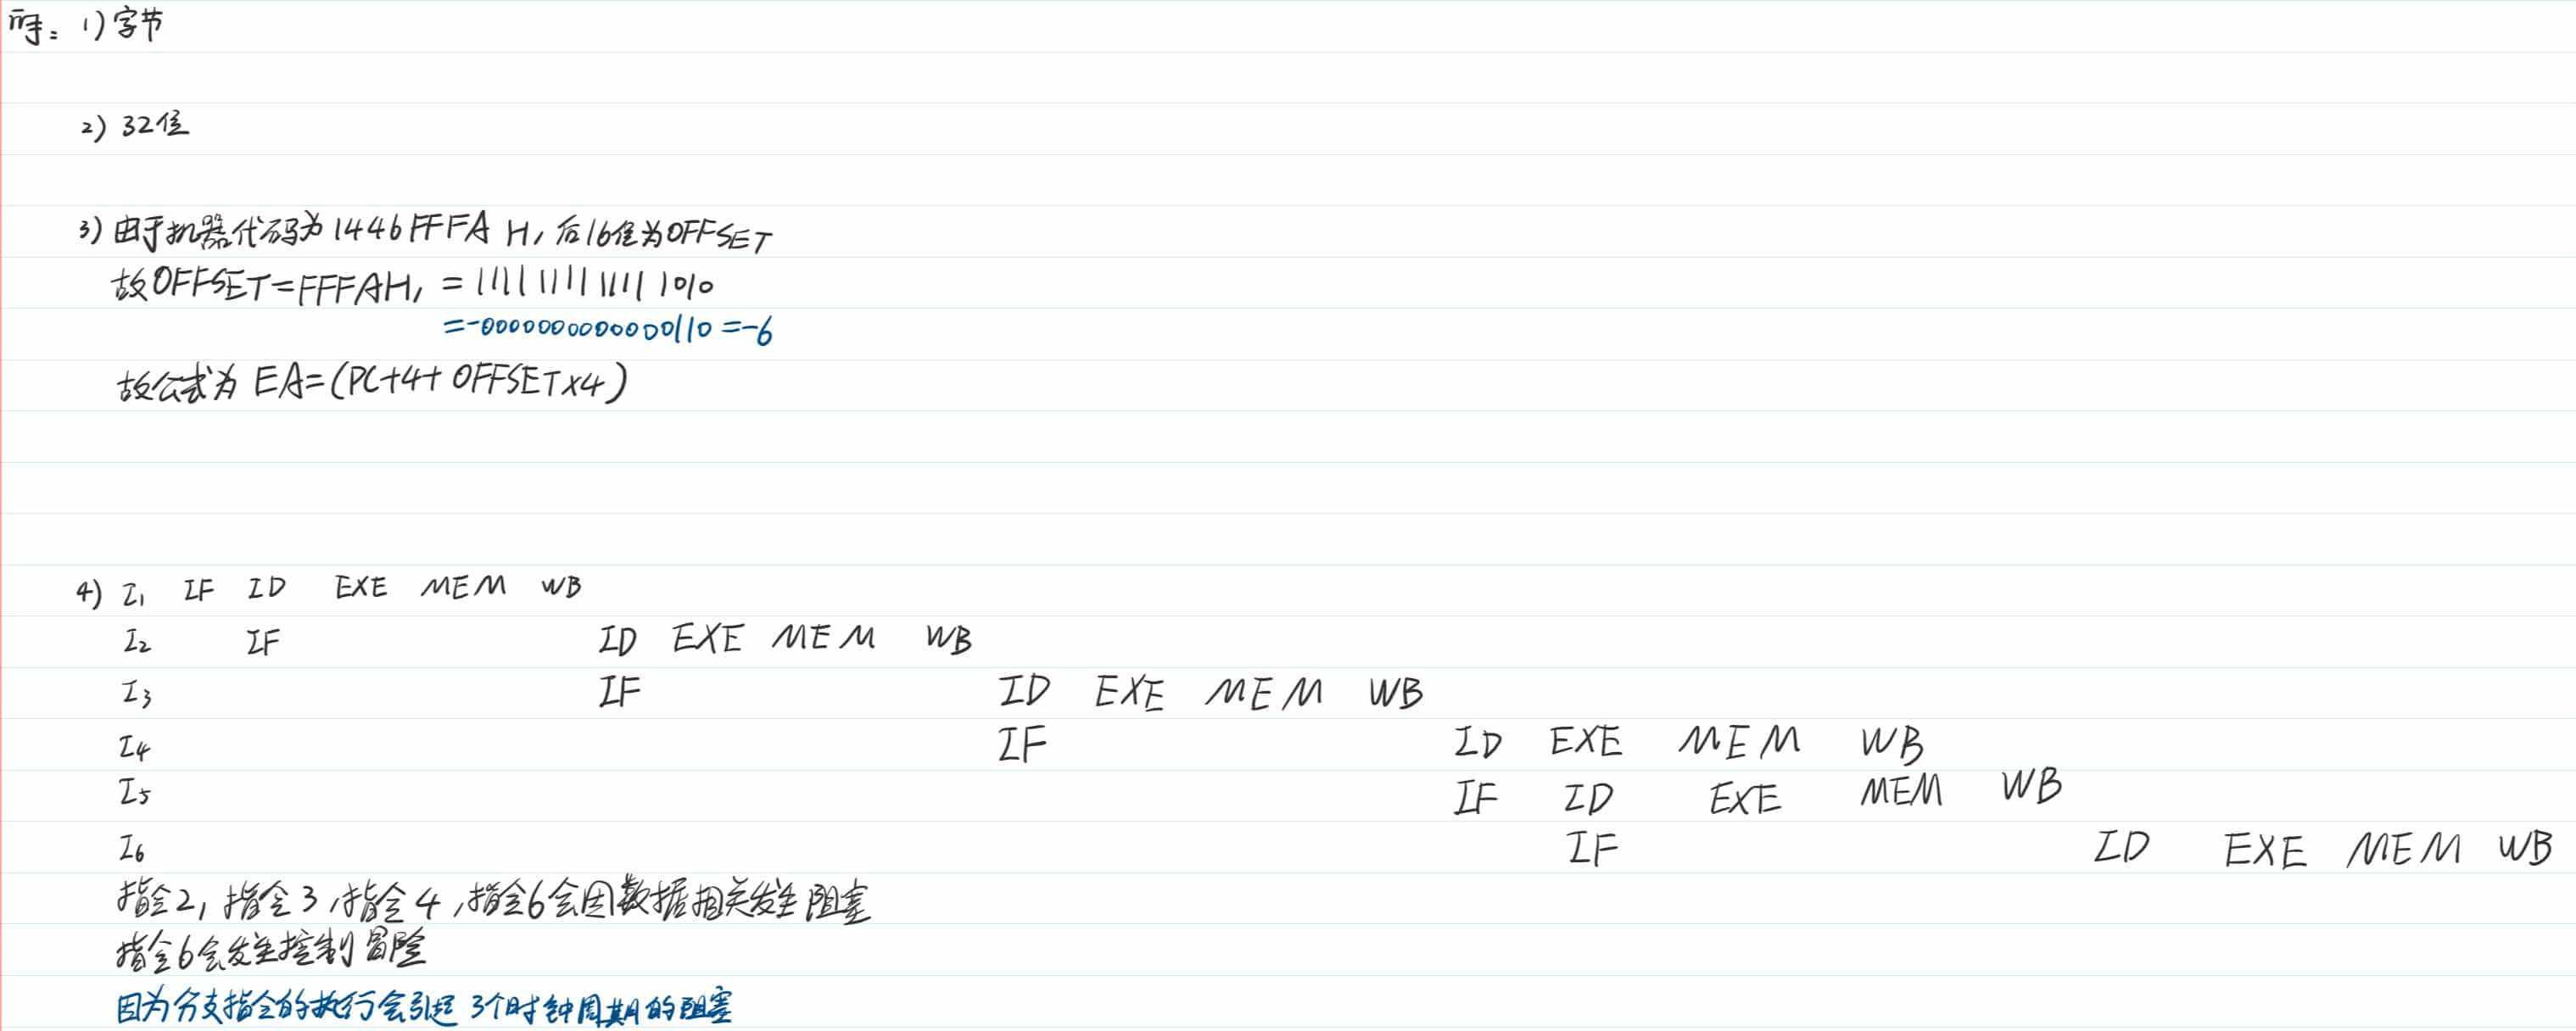 所: 1) 字节
2) 32位
3) 由于机器代码为1446FFFA H, 后16位为OFFSET
故OFFSET=FFFAH, = 1111 1111 1111 1010
=-0000000000000110 =-6
故公式为 EA=(PC+4+ OFFSET×4)
4) I1 IF ID EXE MEM WB
I2 IF ID EXE MEM WB
I3 IF ID EXE MEM WB
I4 IF ID EXE MEM WB
I5 IF ID EXE MEM WB
I6 IF ID EXE MEM WB
指令2, 指令3, 指令4, 指令6会因数据相关发生阻塞
指令6会发生控制冒险
因为分支指令的执行会引起 3个时钟周期的阻塞